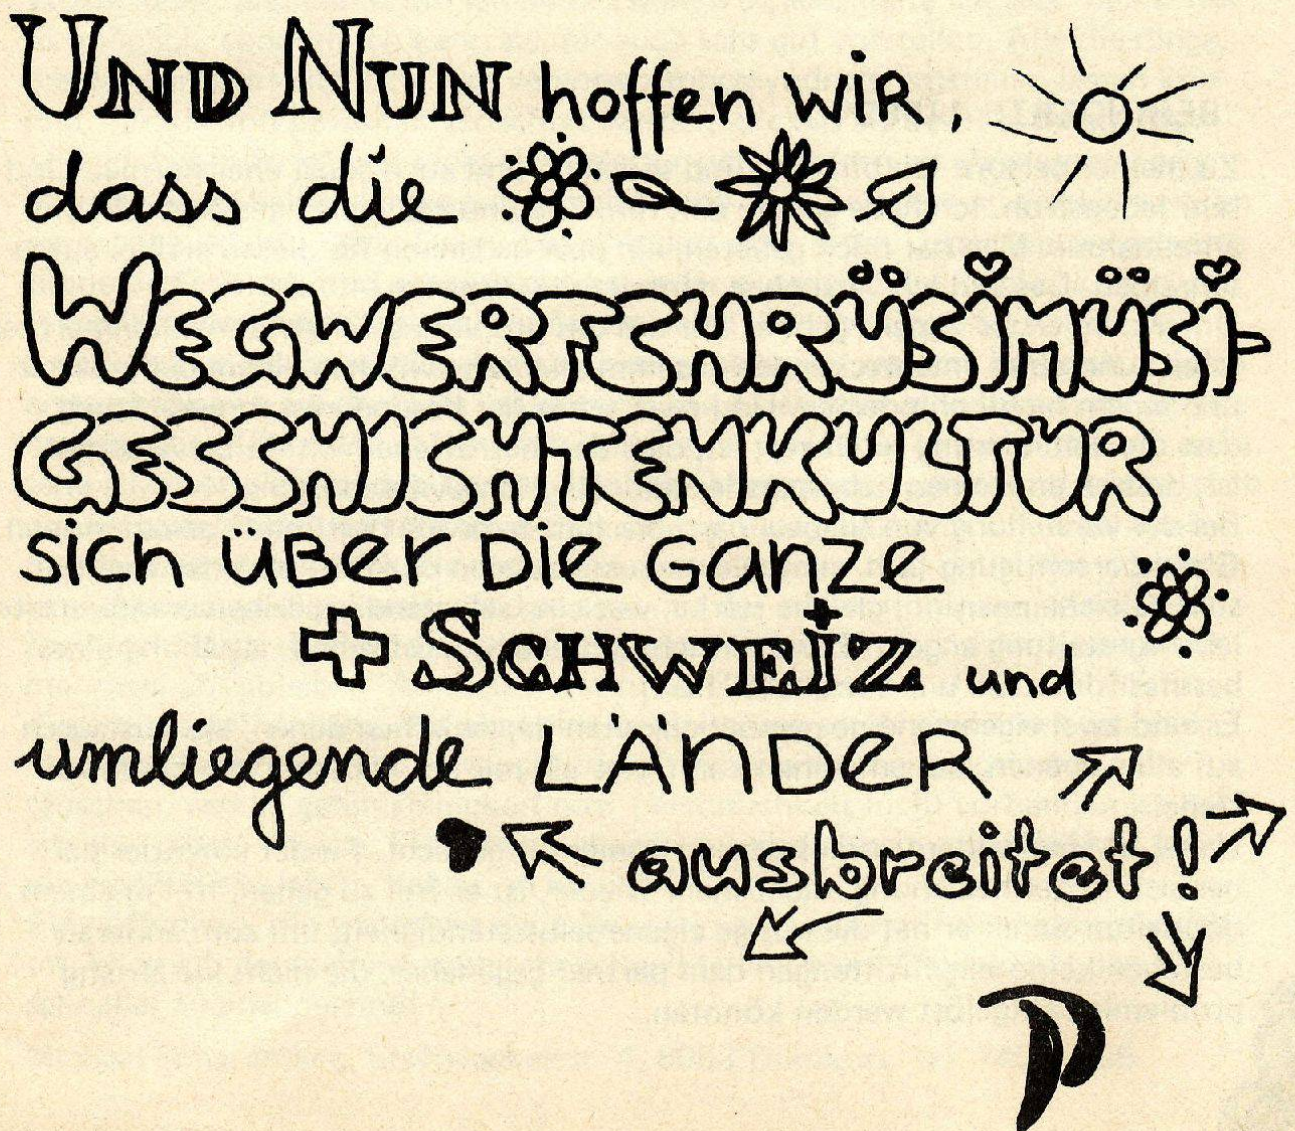 UND NUN hoffen WiR,
dass die
WEGWERFCHRÜSiMÜSi-
GESCHICHTENKULTUR
sich üBER DiE GanZE
SCHWEiZ und
umliegende LÄNDER
ausbreitet!
P